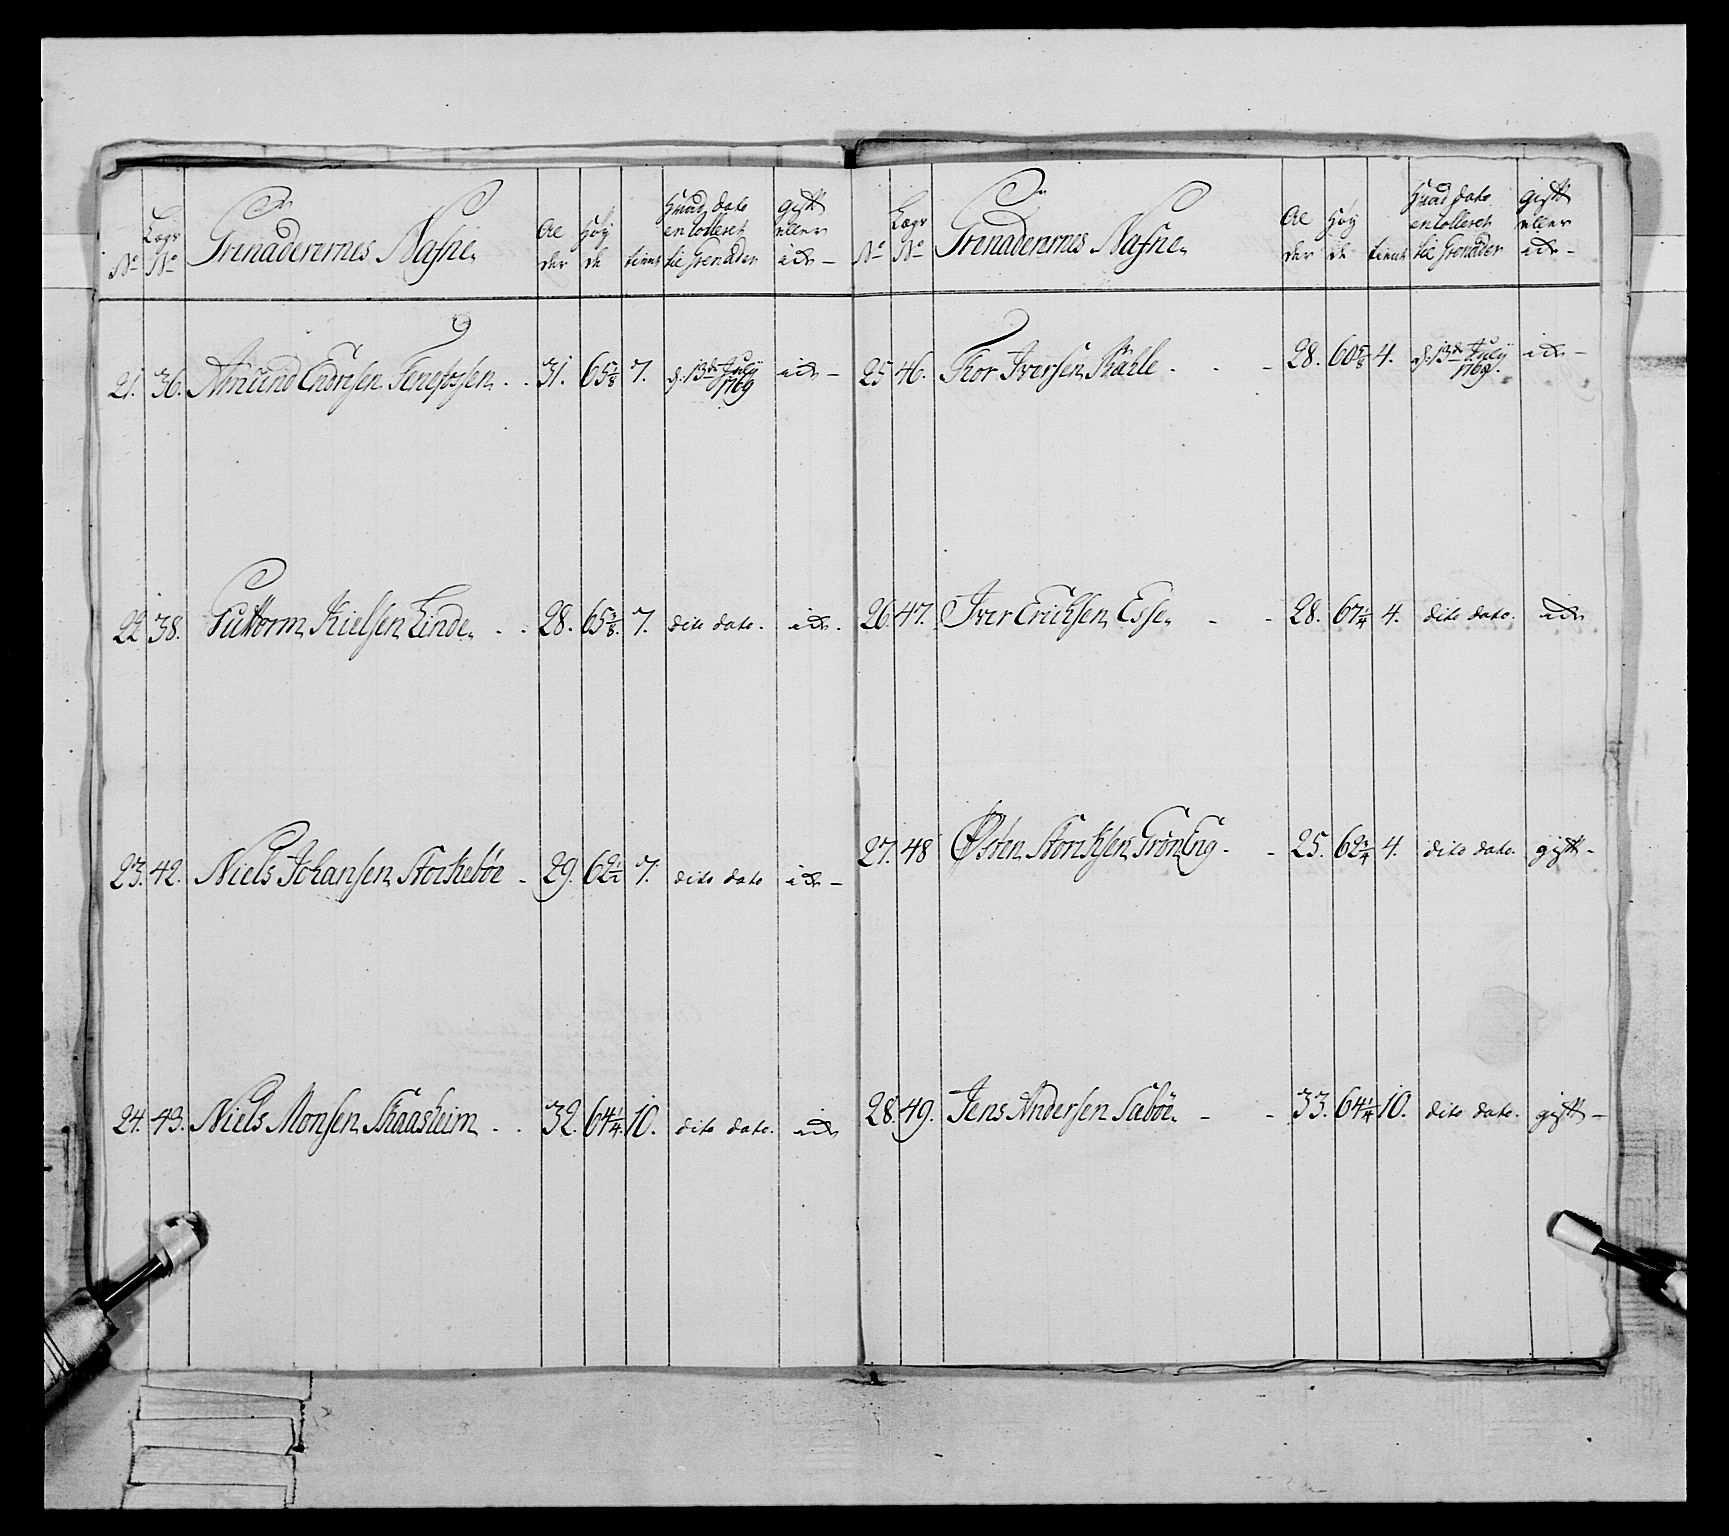 No
Lægs No
Grenaderernes Nafne
Al der
Høy de
tient
hvad dato enrolleret til Grenader
gift eller ide -
21. 36. Amund Endresen - - 31. 65 7. d: 13de July 1769 ide -
22 38. Guttorm Nielsen Linde - - 28. 65 3/8. 7. dito dato. ide.
23. 42. Niels Johansen Stochebøe - 29. 62 1/2 7. dito dato ide -
24. 43. Niels Monsen Skaasheim - - 32. 64 1/4. 10. dito dato. ide
No
Lægs No
Grenaderernes Nafne
Al der
Høy de
tient
hvad dato enrolleret til Grenader
gift eller ide -
25 46. Thor Iversen - - - 28. 60 5/8 4. d: 13de July 1769. ide -
26. 47. Iver Erichsen Esse - - 28. 67 1/4 4. dito dato. ide
27. 48 Østen - - 25. 62 3/4 4. dito dato. gift -
28. 49. Jens Andersen Sæbøe - - 33. 64 1/4 10. dito dato. gift -